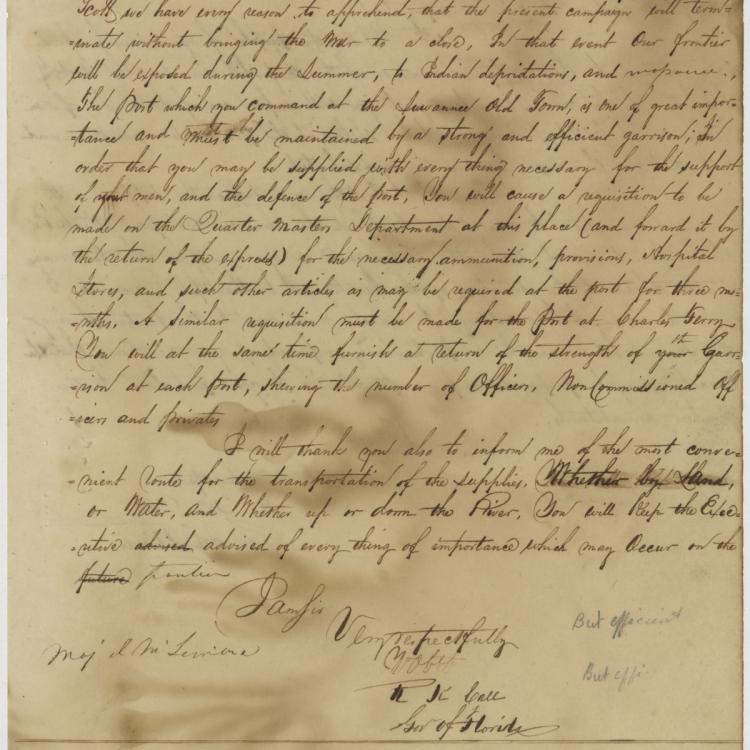 Scott, we have every reason to apprehend, that the present campaign will term=
=inate without bringing the War to a close, In that event Our frontier
will be exposed during the Summer, to Indian depridations, and
The Post which you command at the Suwannee Old Town, is one of great impor=
=tance and must be maintained by a strong and efficient garrison; In
order that you may be supplied with every thing necessary for the support
of your men, and the defence of the post, You will cause a requisition to be
made on the Quarter Masters Department at this place (and forward it by
the return of the express) for the necessary ammunition, provisions, Hospital
Stores, and such other articles as may be required at the post for three mo=
=nths. A similar requisition must be made for the Post at Charles Ferry
You will at the same time furnish a return of the strength of your Garr=
=ison at each Post, shewing the number of Officers, NonCommissioned Off
=icers and privates
I will thank you also to inform me of the most conve=
=nient route for the transportation of the supplies, Whether by Land,
or Water, and Whether up or down the River, You will keep the Exec=
=utive advised advised of every thing of importance which may Occur on the
future frontier
I am Sir
Very respectfully
Yr Obt
R K Call
Gov of Florida
Maj
But efficient
But effi